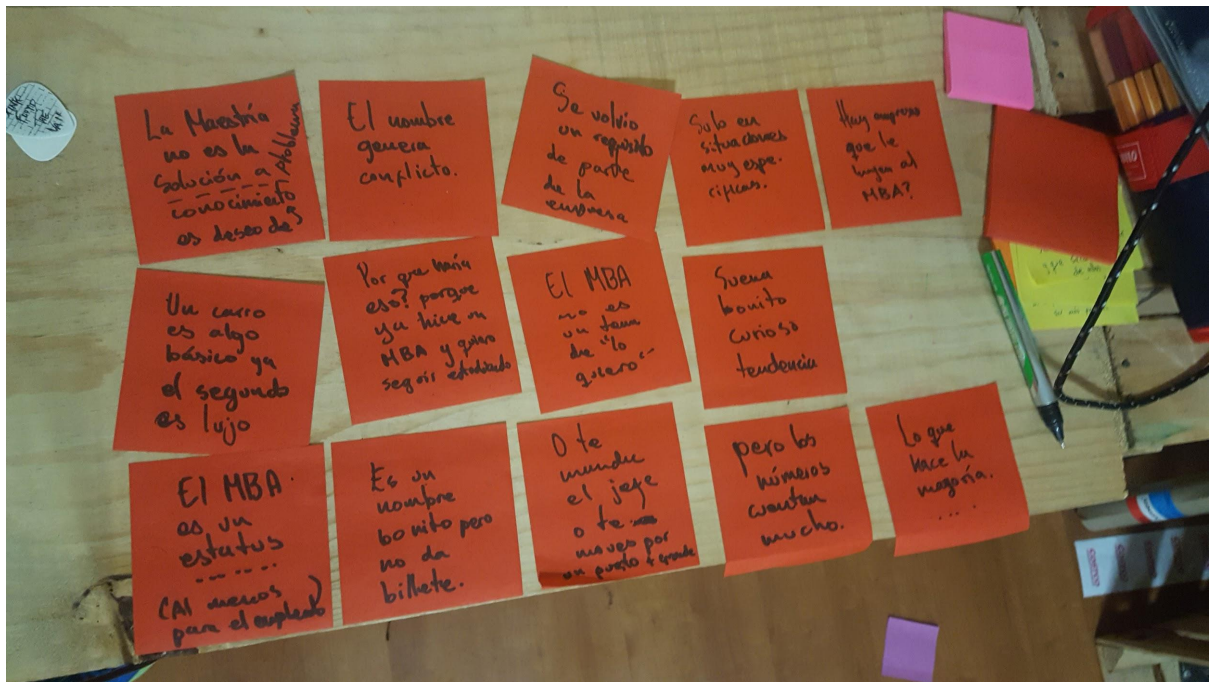 La Maestría
no es la
solución a Problema
conocimiento
es deseo de
El nombre
genera
conflicto.
Se volvio
un requisito
de parte
de la
empresa
Solo en
situaciones
muy espe.
cificas.
Hay empresas
que le
hagan al
MBA?
Un carro
es algo
básico ya
el segundo
es lujo
Por que haría
eso? porque
ya hice un
MBA y quiero
seguir estudiando
El MBA
no es
un tema
de "lo
quiero"
Suena
bonito
curioso
tendencia
El MBA
es un
estatus
(Al menos
para el empleado)
Es un
nombre
bonito pero
no da
billete.
O te
manda
el jefe
o te
mueves por
un puesto + grande
pero los
números
cuentan
mucho.
Lo que
hace la
mayoría.
....